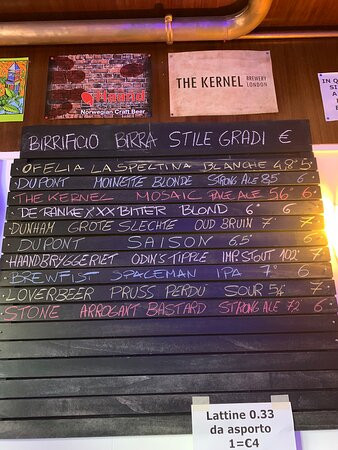 Haand
Norwegian Craft Beer
THE KERNEL BREWERY LONDON
IN Q
BIRRIFICIO BIRRA STILE GRADI €
OFELIA LA SPELTINA BLANCHE 4,8° 5
DUPONT MOINETTE BLONDE STRONG ALE 8,5 6
THE KERNEL MOSAIC PALE ALE 5,6° 6
DE RANKE XXX BITTER BLOND 6° 6
DUNHAM GROTE SLECHTE OUD BRUIN 7° 7
DUPONT SAISON 6,5° 6
HAANDBRYGGERIET ODIN'S TIPPLE IMP. STOUT 10,2° 7
BREWFIST SPACEMAN IPA 7° 6
LOVERBEER PRUSS PERDU SOUR 5,6 7
STONE ARROGANT BASTARD STRONG ALE 7,2 6
Lattine 0.33
da asporto
1=€4